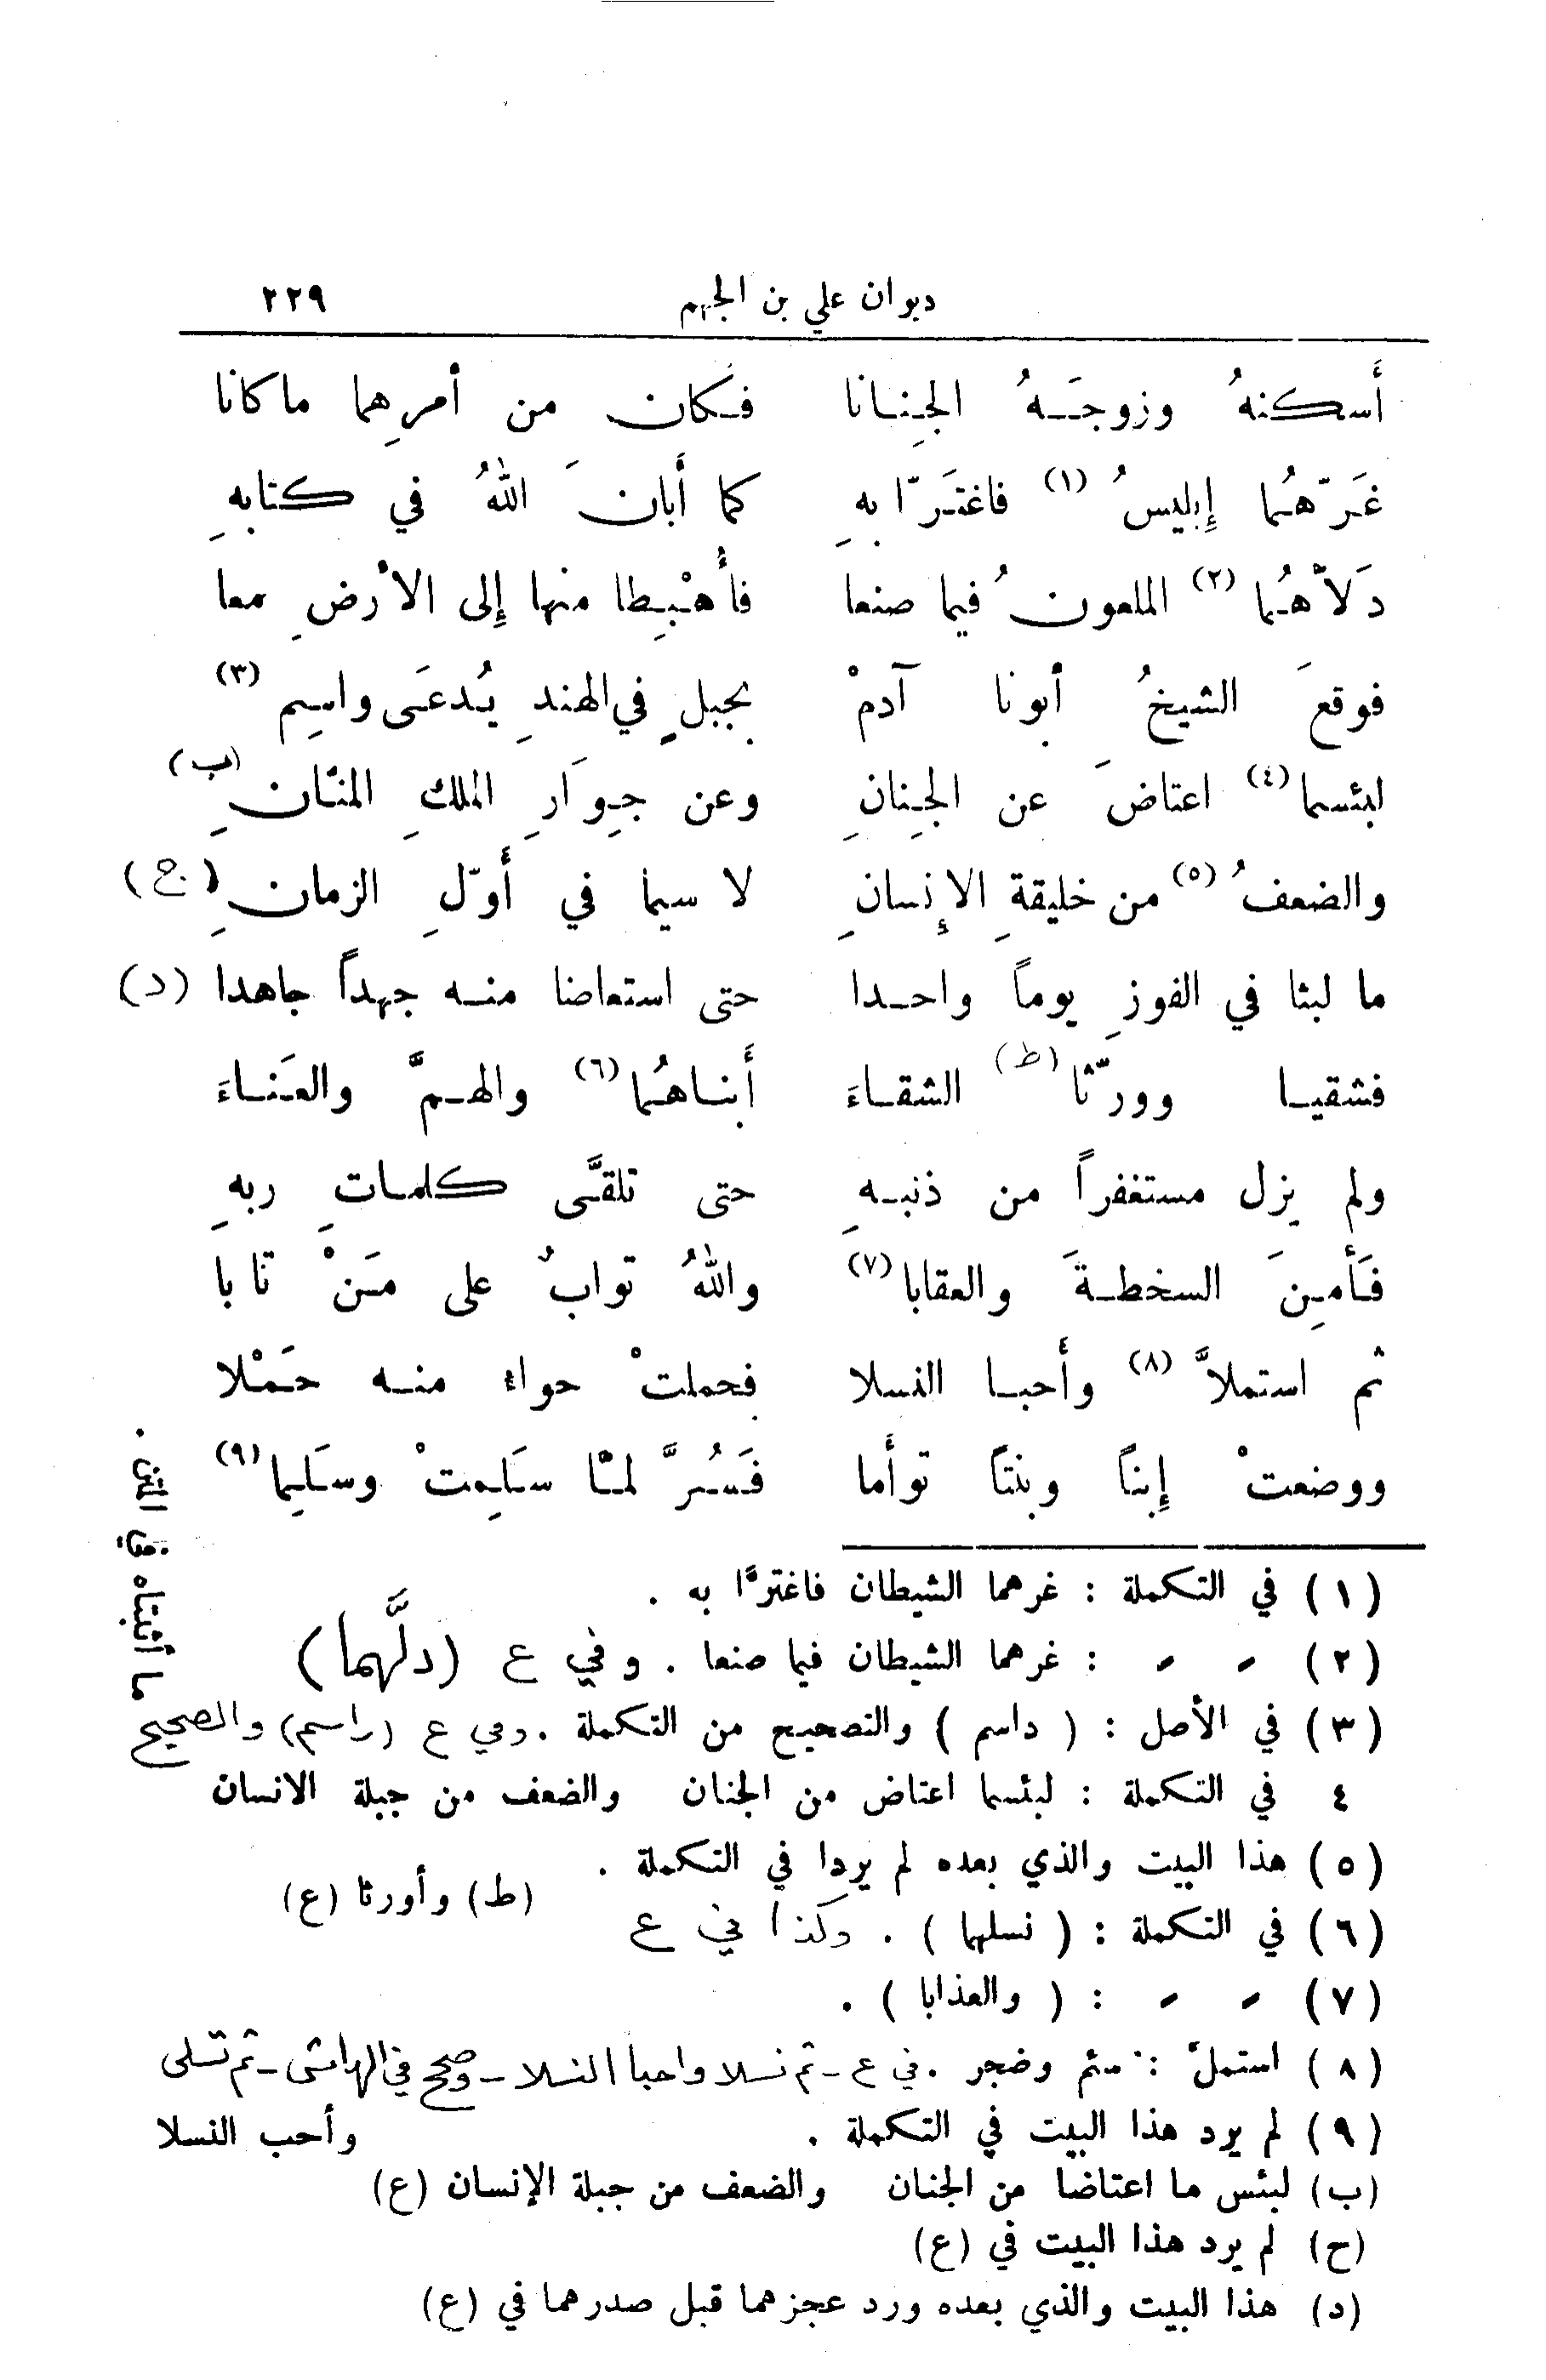 ديوان علي بن الجهم ٢٢٩
أَسكنهُ وزوجَهُ الجِنانا فكان من أمرِهما ما كانا
غَرّهُما إِبليسُ (١) فاغتَرّا بهِ كما أَبانَ اللهُ في كتابهِ
دَلاّهُما (٢) الملعونُ فيما صنعا فأُهْبِطا منها إِلى الأرضِ معا
فوقعَ الشيخُ أبونا آدمْ بجبلٍ في الهندِ يُدعَى واسِم (٣)
لبئسما (٤) اعتاضَ عن الجِنانِ وعن جِوَارِ الملكِ المنّانِ (ب)
والضعفُ (٥) من خليقةِ الإِنسانِ لا سيما في أَوّلِ الزمانِ (ح)
ما لبثا في الفوزِ يوماً واحدا حتى استعاضا منه جهداً جاهدا (د)
فشقيا وورّثا (ط) الشقاءَ أَبناهُما (٦) والهمَّ والعَناءَ
ولم يزل مستغفراً من ذنبهِ حتى تلقَّى كلماتِ ربهِ
فَأَمِنَ السخطةَ والعقابا (٧) واللهُ توابٌ على مَنْ تابا
ثم استملاَّ (٨) وأَحبا النسلا فحملتْ حواء منه حَمْلا
ووضعتْ إِبناً وبنتاً توأَما فَسُرَّ لمّا سَلِمتْ وسَلِما (٩)
(١) في التكملة : غرهما الشيطان فاغترّا به .
(٢) » » : غرهما الشيطان فيما صنعا . وفي ع (دلَّهما)
(٣) في الأصل : ( داسم ) والتصحيح من التكملة . وفي ع (راسم) والصحيح
ما أثبتاه في المتن .
٤ في التكملة : لبئسما اعتاض من الجنان والضعف من جبلة الانسان
(٥) هذا البيت والذي بعده لم يردا في التكملة .
(ط) وأورثا (ع)
(٦) في التكملة : ( نسلهما ) . وكذا في ع
(٧) » » : ( والعذابا ) .
(٨) استملّ : سئم وضجر . في ع - ثم نسلا واحبا النسلا - وصحح في الهامش - ثم تسلى
وأحب النسلا
(٩) لم يرد هذا البيت في التكملة .
(ب) لبئس ما اعتاضا من الجنان والضعف من جبلة الإنسان (ع)
(ح) لم يرد هذا البيت في (ع)
(د) هذا البيت والذي بعده ورد عجزهما قبل صدرهما في (ع)